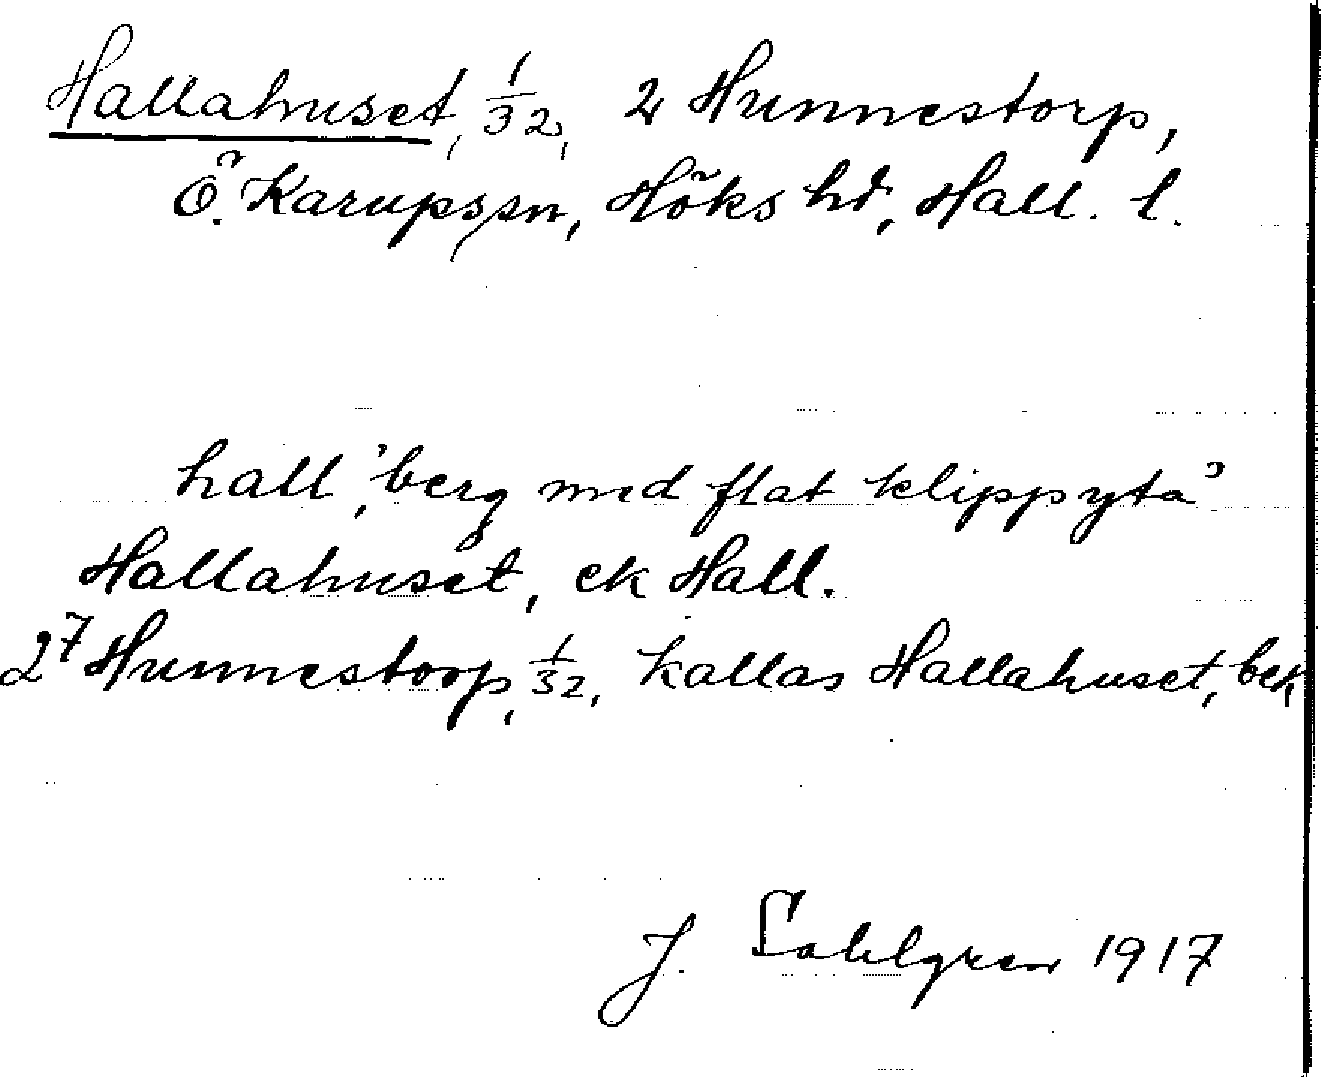 Hallahuset, 1/32, 2 Hunnestorp,
Ö. Karups sn, Höks hd, Hall. l.
hall, 'berg med flat klippyta'
Hallahuset, ek Hall.
2⁷ Hunnestorp, 1/32, kallas Hallahuset, bek
J. Sahlgren 1917